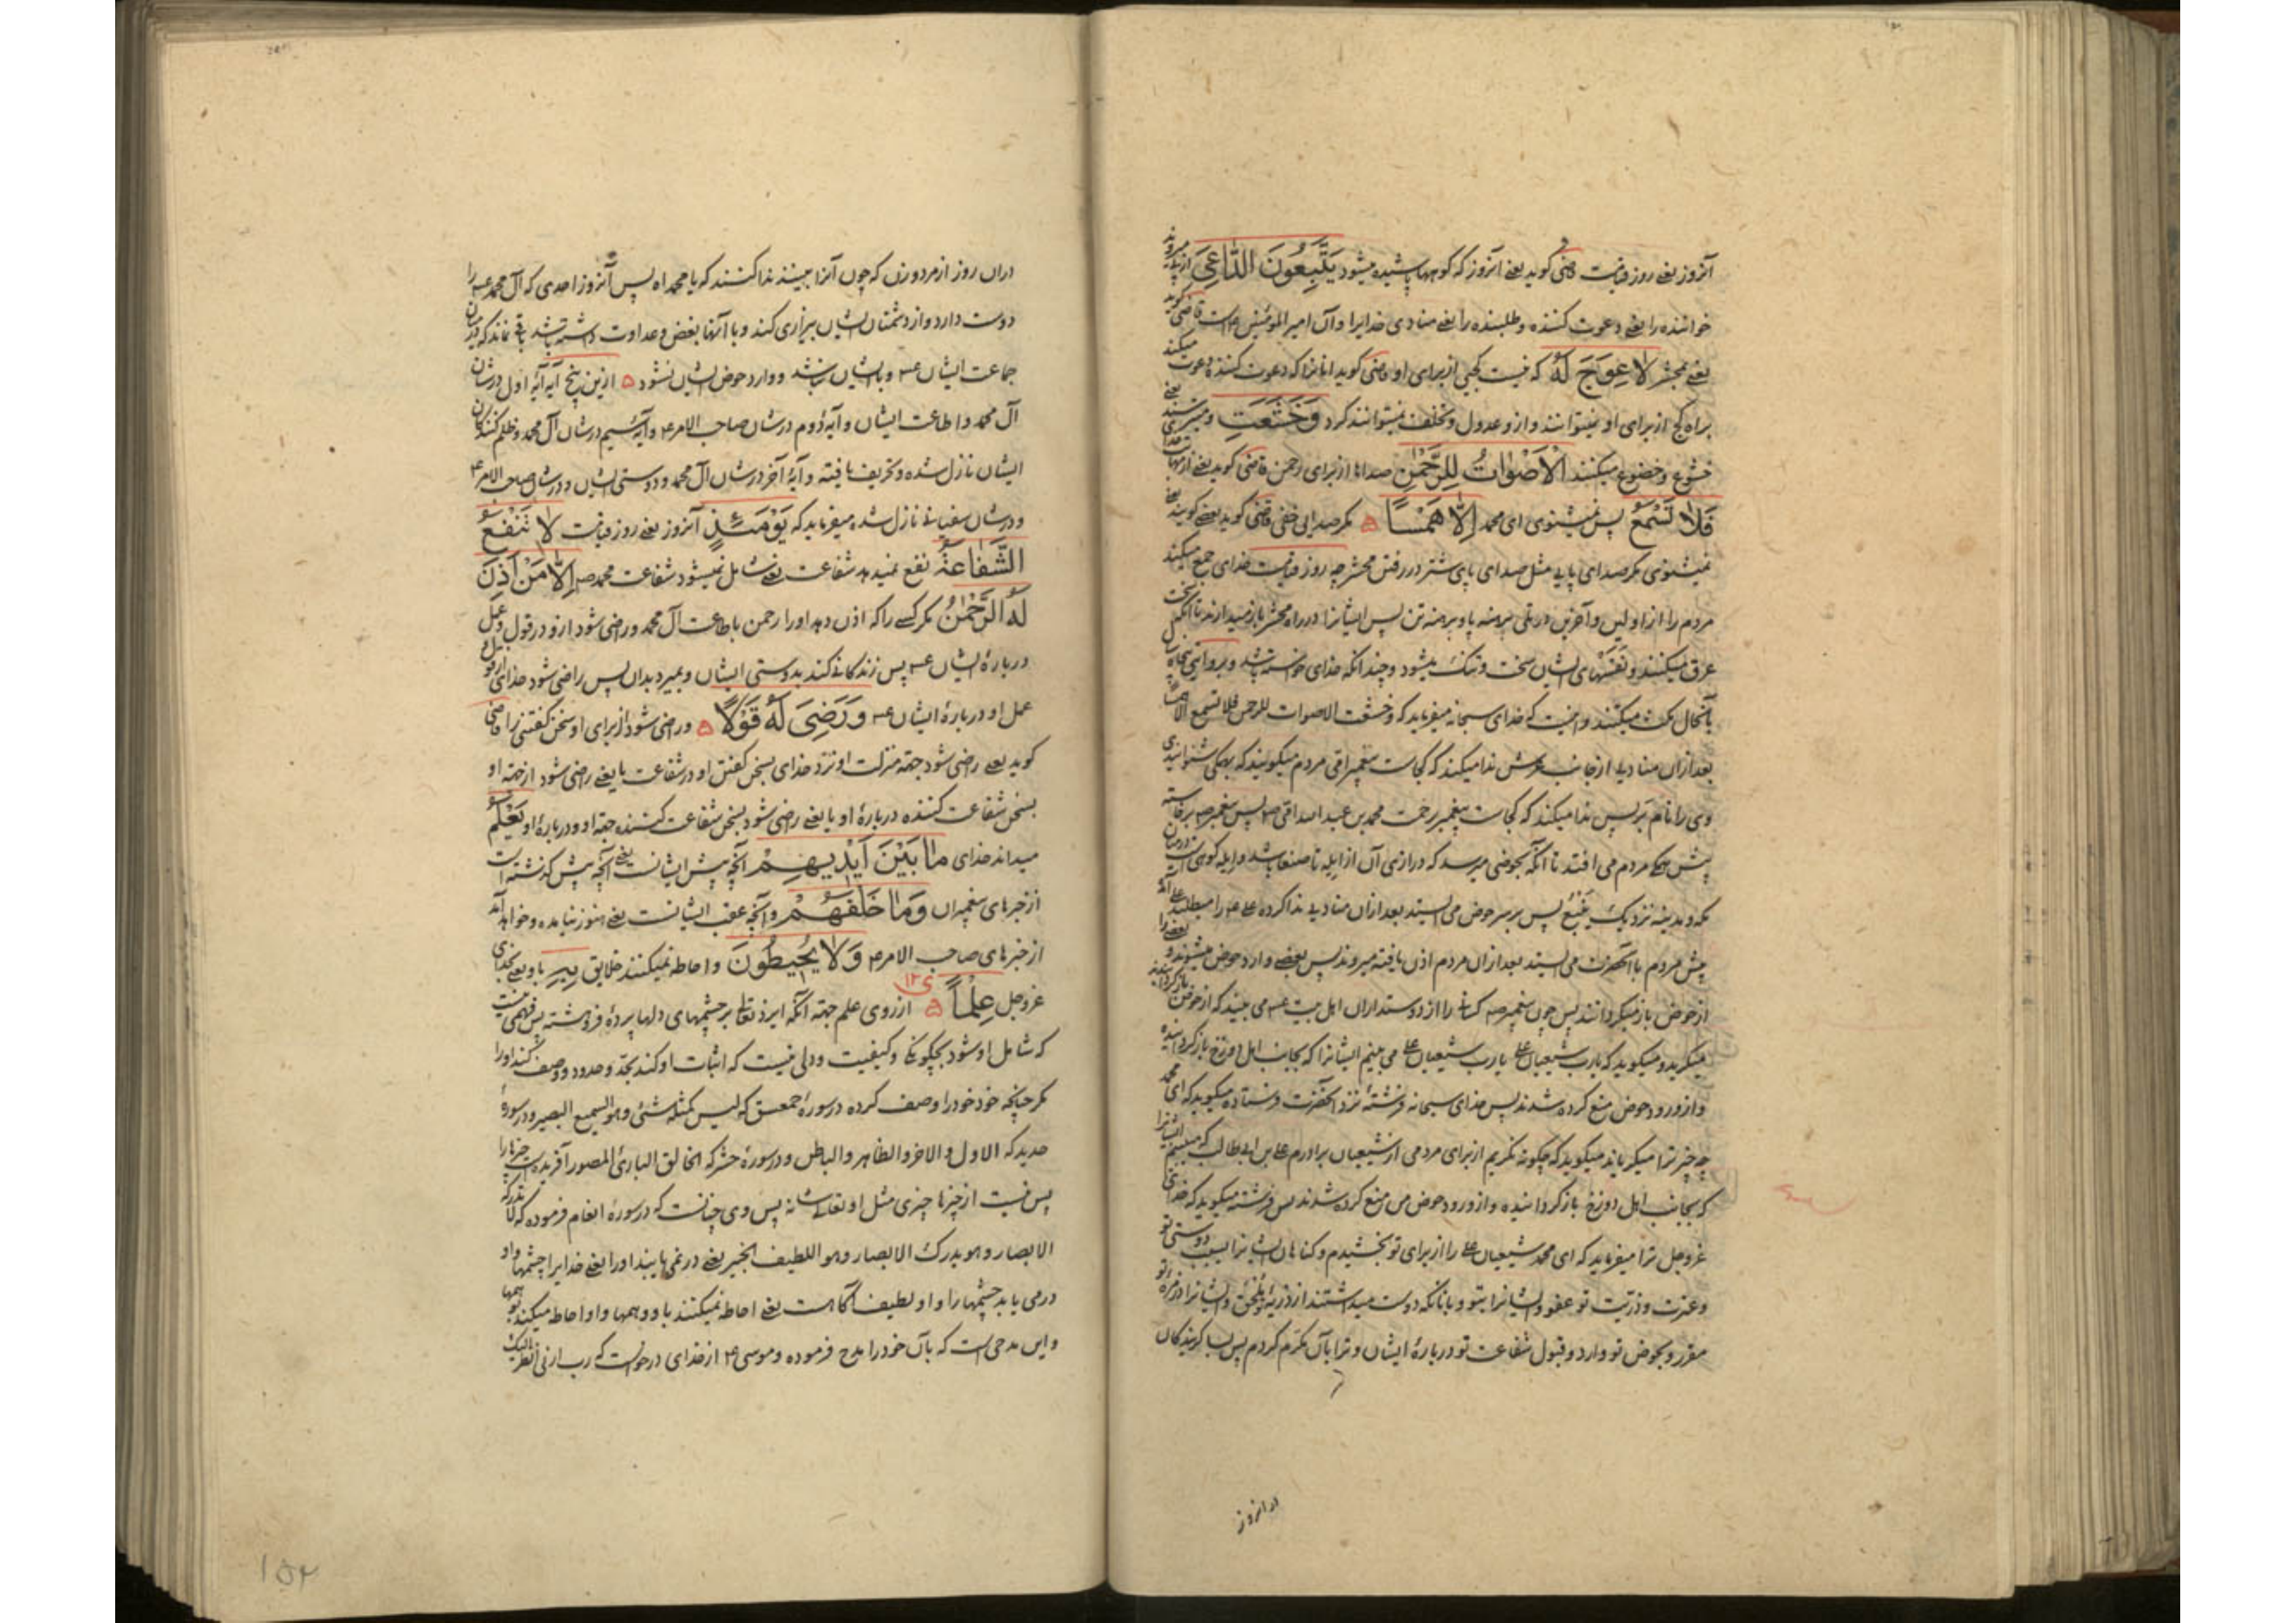 آنروز یعنی روز قیامت قاضی گوید یعنی آنروز که کوهها پاشیده میشود یَتَّبِعُونَ الدَّاعِیَ از پی میروند
خواننده را یعنی دعوت کننده و طلبنده را یعنی منادی خدایرا و آن امیر المؤمنین ع است قاضی گوید
یعنی محشر لَا عِوَجَ لَهُ که نیست کجی از برای او قاضی گوید انانرا که دعوت کننده دعوت میکند
براه کج از برای او نمیتوانند و ازو عدول و تخلف نمیتوانند کرد وَخَشَعَتِ و میترسند یعنی
خشوع و خضوع میکنند الْأَصْوَاتُ لِلرَّحْمٰنِ صداها از برای رحمن قاضی گوید یعنی از مهابت خدا
فَلَا تَسْمَعُ پس نمیشنوی ای محمد إِلَّا هَمْسًا ۵ مکر صدایی خفی قاضی گوید یعنی گویند یعنی
نمیشنوی مکر صدای پایی مثل صدای پای شتر در رفتن محشر چه روز قیامت خدای جمع میکند
مردم را از اولین و آخرین در تلی برهنه پا و برهنه تن پس ایشانرا در راه محشر باز میدارند تا آنکه سخت
عرق میکنند و نفسهای ایشان سخت و تنگ میشود و چندانکه خدای خواسته باشد و بروایتی پنجاه سال
بآنحال مکث میکنند و اینست که خدای سبحانه میفرماید که و خشعت الاصوات للرحمن فلا تسمع الا همسا
بعد ازان منادیی از جانب عرش ندا میکند که کجاست پیغمبر امّی مردم میگویند که بهمکی شنوانیدی
وی را نام بر پس ندا میکند که کجاست پیغمبر رحمت محمد بن عبد الله امّی ص پس پیغمبر ص برخاسته
پیش همه مردم می افتد تا آنکه بحوضی میرسد که درازی آن از ایله تا صنعا باشد و ایله کوهی است در میان
مکه و مدینه نزدیک ینبع پس بر سر حوض می ایستد بعد ازان منادیی ندا کرده علی ع را میطلبد علی آمده
پیش مردم با آنحضرت می ایستد بعد ازان مردم اذن یافته میروند پس بعضی وارد حوض میشوند و بعضی را
از حوض باز میگردانند پس چون پیغمبر ص کسانی را از دوستداران اهل بیت ع می بیند که از حوض باز گردانیدند
میگرید و میگوید که یا رب شیعیان علی یا رب شیعیان علی می بینم ایشانرا که بجانب اهل دوزخ باز گردانیده
و از ورود حوض منع کرده شدند پس خدای سبحانه فرشتهٔ نزد آنحضرت فرستاده میگوید که ای محمد
چه چیز ترا میگریاند میگوید که چگونه نگریم از برای مردمی از شیعیان برادرم علی بن ابی طالب که می بینم ایشانرا
که بجانب اهل دوزخ باز گردانیده و از ورود حوض من منع کرده شدند پس فرشته میگوید که خدای
عزوجل ترا میفرماید که ای محمد شیعیان علی را از برای تو بخشیدم و گناهان ایشانرا بسبب دوستی تو
و عترت و ذریّت تو عفو و ایشانرا بتو و بآنانکه دوست میداشتند از ذریهٔ تو ملحق و ایشانرا در زمرهٔ تو
مقرر و بحوض تو وارد و قبول شفاعت تو در بارهٔ ایشان و ترا بآن مکرّم کردم پس بسا گریندگان
در انروز
دران روز از مرد و زن که چون آنرا ببینند ندا کنند که یا محمداه پس آنروز احدی که آل محمد ع را
دوست دارد و از دشمنان ایشان بیزاری کند و با آنها بغض و عداوت داشته باشد باقی نماند که در میان
جماعت ایشان ع و با ایشان نباشد و وارد حوض ایشان نشود ۵ ازین پنج آیه آیهٔ اول در شان
آل محمد و اطاعت ایشان و آیهٔ دوم در شان صاحب الامر ع و آیهٔ سیم در شان آل محمد و ظلم کنندکان
ایشان نازل شده و تحریف یافته و آیهٔ آخر در شان آل محمد و دوستی ایشان و در شان صاحب الامر ع
و در شان سفیانی نازل شده میفرماید که یَوْمَئِذٍ آنروز یعنی روز قیامت لَا تَنْفَعُ
الشَّفَاعَةُ نفع نمیدهد شفاعت یعنی شامل نمیشود شفاعت محمد ص إِلَّا مَنْ أَذِنَ
لَهُ الرَّحْمٰنُ مکر کسی را که اذن دهد او را رحمن باطاعت آل محمد و راضی شود ازو در قول و عمل
در بارهٔ ایشان ع پس زندگانی کند بدوستی ایشان و بمیرد بدان پس راضی شود خدای از قول
عمل او در بارهٔ ایشان ع وَرَضِیَ لَهُ قَوْلًا ۵ و راضی شود از برای او سخن گفتنی را قاضی
گوید یعنی راضی شود جهة منزلت او نزد خدای بسخن گفتن او در شفاعت یا یعنی راضی شود از جهة او
بسخن شفاعت کننده در بارهٔ او یا یعنی راضی شود بسخن شفاعت کننده جهة او و در بارهٔ او یَعْلَمُ
میداند خدای مَا بَیْنَ أَیْدِیهِمْ آنچه پیش ایشانست یعنی آنچه پیش گذشته است
از خبرهای پیغمبران وَمَا خَلْفَهُمْ و آنچه عقب ایشانست یعنی هنوز نیامده و خواهد آمد
از خبرهای صاحب الامر ع وَلَا یُحِیطُونَ و احاطه نمیکنند خلایق بِهِ باو یعنی بخدای
عزوجل عِلْمًا ۵ از روی علم جهة آنکه ایزد تعالی بر چشمهای دلها پرده فروهشته پس فهمی نیست
که شامل او شود بچگونگی و کیفیت و دلی نیست که اثبات او کند بحدّ و حدود و وصف نکند او را
مکر چنانچه خود خود را وصف کرده در سورهٔ حمعسق که لیس کمثله شئ و هو السمیع البصیر و در سورهٔ
حدید که الاول و الاخر و الظاهر و الباطن و در سورهٔ حشر که الخالق البارئ المصور آفریده است چیزها را
پس نیست از چیزها چیزی مثل او تعالی شانه پس وی چنانست که در سورهٔ انعام فرموده که لا تدرکه
الابصار و هو یدرک الابصار و هو اللطیف الخبیر یعنی در نمی یابند او را یعنی خدایرا چشمها و او
در می یابد چشمها را و او لطیف آگاهست یعنی احاطه نمیکنند باو وهمها و او احاطه میکند بوهمها
و این مدحی است که بآن خود را مدح فرموده و موسی ع از خدای درخواست که رب ارنی انظر الیک
۱۵۲